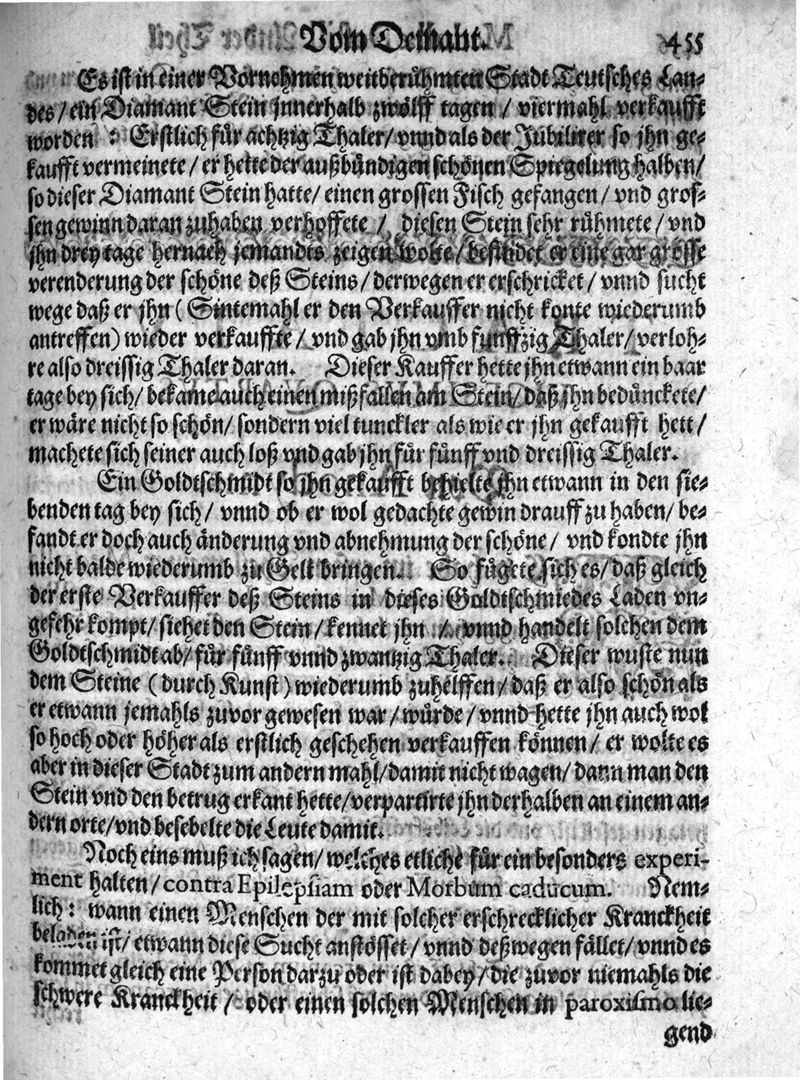 Vom Demant. 455
Es ist in einer Vornehmen weitberühmten Stadt Teutsches Lan-
des / ein Diamant Stein jnnerhalb zwölff tagen / viermahl verkaufft
worden : Erstlich für achtzig Thaler / vnnd als der Jubilirer so jhn ge-
kaufft vermeinete / er hette der außbündigen schönen Spiegelung halben /
so dieser Diamant Stein hatte / einen grossen Fisch gefangen / vnd gros-
sen gewinn daran zuhaben verhoffete / diesen Stein sehr rühmete / vnd
jhn drey tage hernach jemandts zeigen wolte / befindet er eine gar grosse
verenderung der schöne deß Steins / derwegen er erschricket / vnnd sucht
wege daß er jhn ( Sintemahl er den Verkauffer nicht konte wiederumb
antreffen ) wieder verkauffte / vnd gab jhn vmb funffzig Thaler / verloh-
re also dreissig Thaler daran. Dieser Kauffer hette jhn etwann ein baar
tage bey sich / bekame auch einen mißfallen am Stein / daß jhn bedünckete /
er wäre nicht so schön / sondern viel tunckler als wie er jhn gekaufft hett /
machete sich seiner auch loß vnd gab jhn für fünff vnd dreissig Thaler.
Ein Goldtschmidt so jhn gekaufft behielte jhn etwann in den sie-
benden tag bey sich / vnnd ob er wol gedachte gewin drauff zu haben / be-
fandt er doch auch änderung vnd abnehmung der schöne / vnd kondte jhn
nicht balde wiederumb zu Gelt bringen. So fügete sich es / daß gleich
der erste Verkauffer deß Steins in dieses Goldtschmiedes Laden vn-
gefehr kompt / siehet den Stein / kennet jhn / vnnd handelt solchen dem
Goldtschmidt ab / für fünff vnnd zwantzig Thaler. Dieser wuste nun
dem Steine ( durch Kunst ) wiederumb zuhelffen / daß er also schön als
er etwann jemahls zuvor gewesen war / würde / vnnd hette jhn auch wol
so hoch oder höher als erstlich geschehen verkauffen können / er wolte es
aber in dieser Stadt zum andern mahl / damit nicht wagen / dann man den
Stein vnd den betrug erkant hette / verpartirte jhn derhalben an einem an-
dern orte / vnd besebelte die Leute damit.
Noch eins muß ich sagen / welches etliche für ein besonders experi-
ment halten / contra Epilepsiam oder Morbum caducum. Nem-
lich : wann einen Menschen der mit solcher erschrecklicher Kranckheit
beladen ist / etwann diese Sucht anstösset / vnnd deßwegen fället / vnnd es
kommet gleich eine Person darzu oder ist dabey / die zuvor niemahls die
schwere Kranckheit / oder einen solchen Menschen in paroxismo lie-
gend